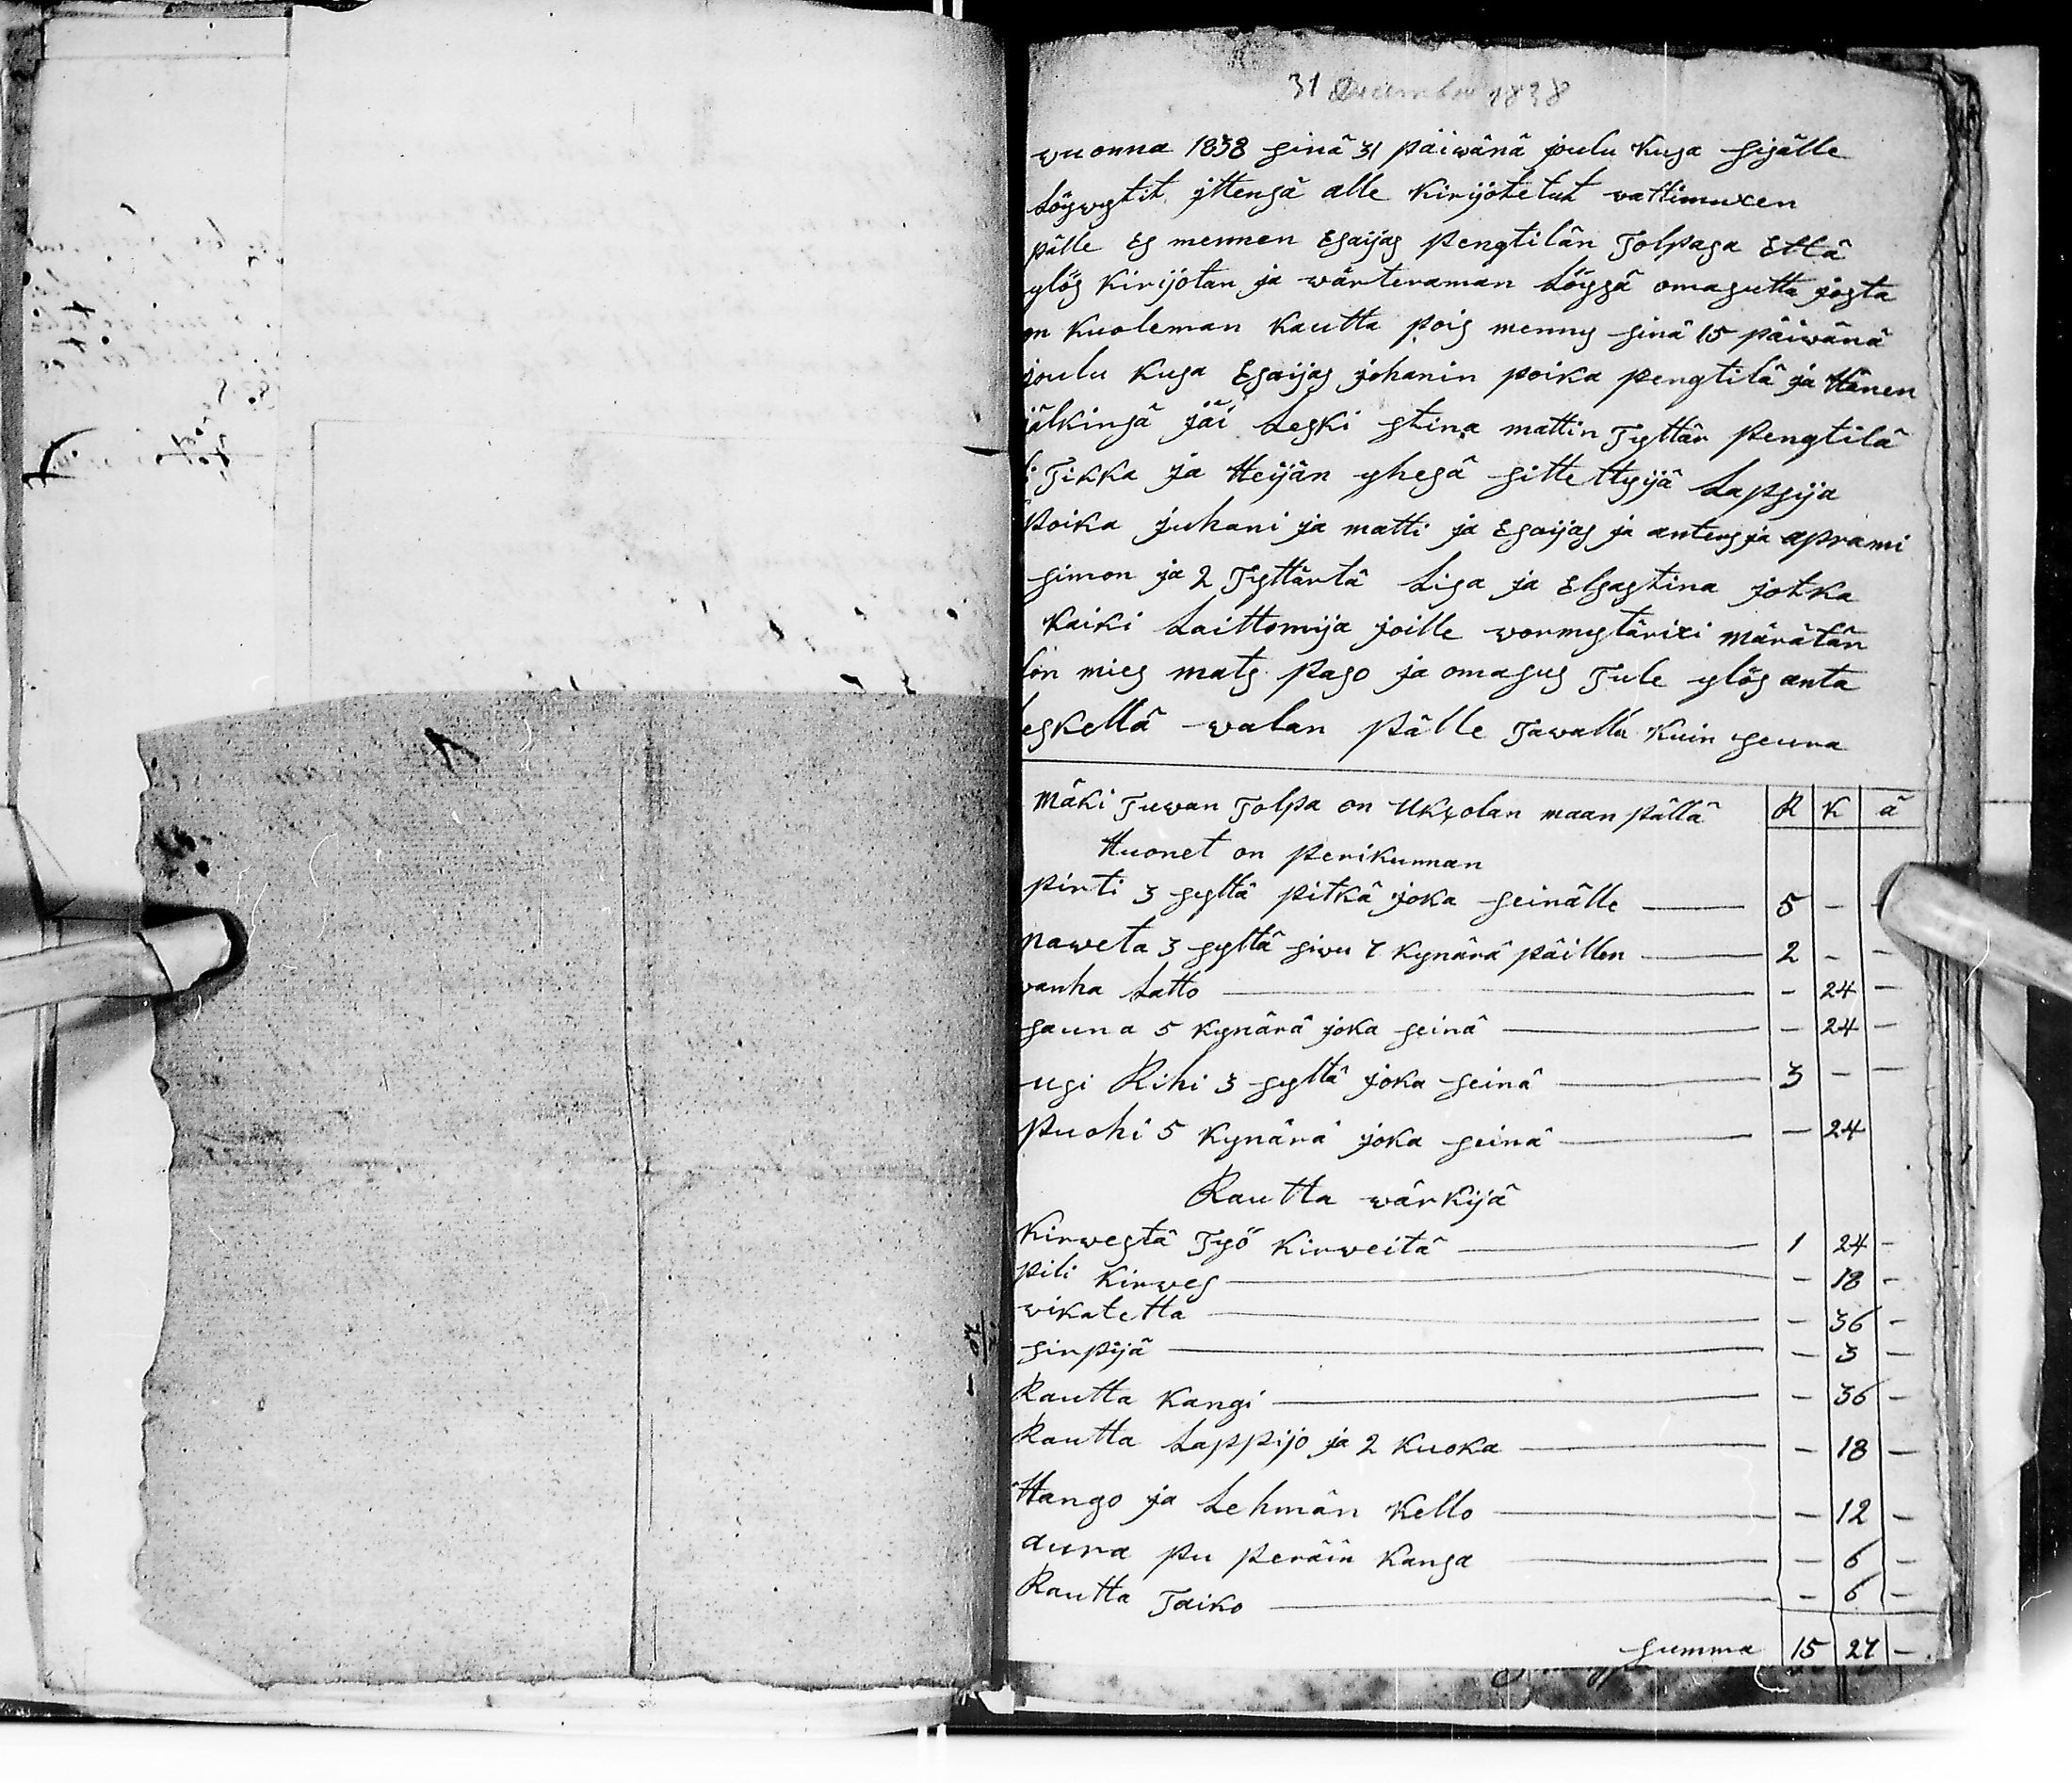 31 December 1838
wuonna 1838 sinä 31 päiwänä joulu kusa sisälle
Löywystit ittensä alle kirijotetut vattimuxen
pälle Es mennen Esaijas Pengtilän Tolpasa Että
ylös kirijotan ja wärteraman Löyssä omasutta josta
on kuoleman kautta pois mennys sinä 15 päiwänä
joulu kusa Esaijas johanin poika pengtilä ja Hänen
jälkinsä jäi Leski stina mattin Tyttär Pengtilä
Tikka ja Heijän yhesä sittettyijä Lapsija
Poika juhani ja matti ja Esaijas ja anters ja aprami
simon ja 2 Tyttärtä Lisa ja Elsastina jotka
kaiki Laittomija joille wormystärixi märätän
lön mies mats paso ja omasus Tule ylös anta
leskellä walan pälle Tawalla kuin seura
mäki Tuwan Tolpa on Ukkolan maan pällä R K ä
Huonet on perikunnan
pirti 3 syltä pitkä joka seinälle — 5 - -
naweta 3 syltä siwu 7 kynärä päillen — 2 - -
vanha Latto — - 24 -
sauna 5 kynärä joka seinä — - 24 -
usi Rihi 3 syltä joka seinä — 3 - -
puohi 5 kynärä joka seinä — - 24
Rautta wärkijä
kirwestä Työ kirweitä — 1 24 -
pili kirwes — - 18 -
wikatetta — - 36 -
sirpijä — - 3 -
Rautta kangi — - 36 -
Rautta Lappijo ja 2 kuoka — - 18 -
Hango ja Lehmän kello — - 12 -
aura pu peräin kansa — - 6 -
Rautta Taiko — - 6 -
summa 15 27 -